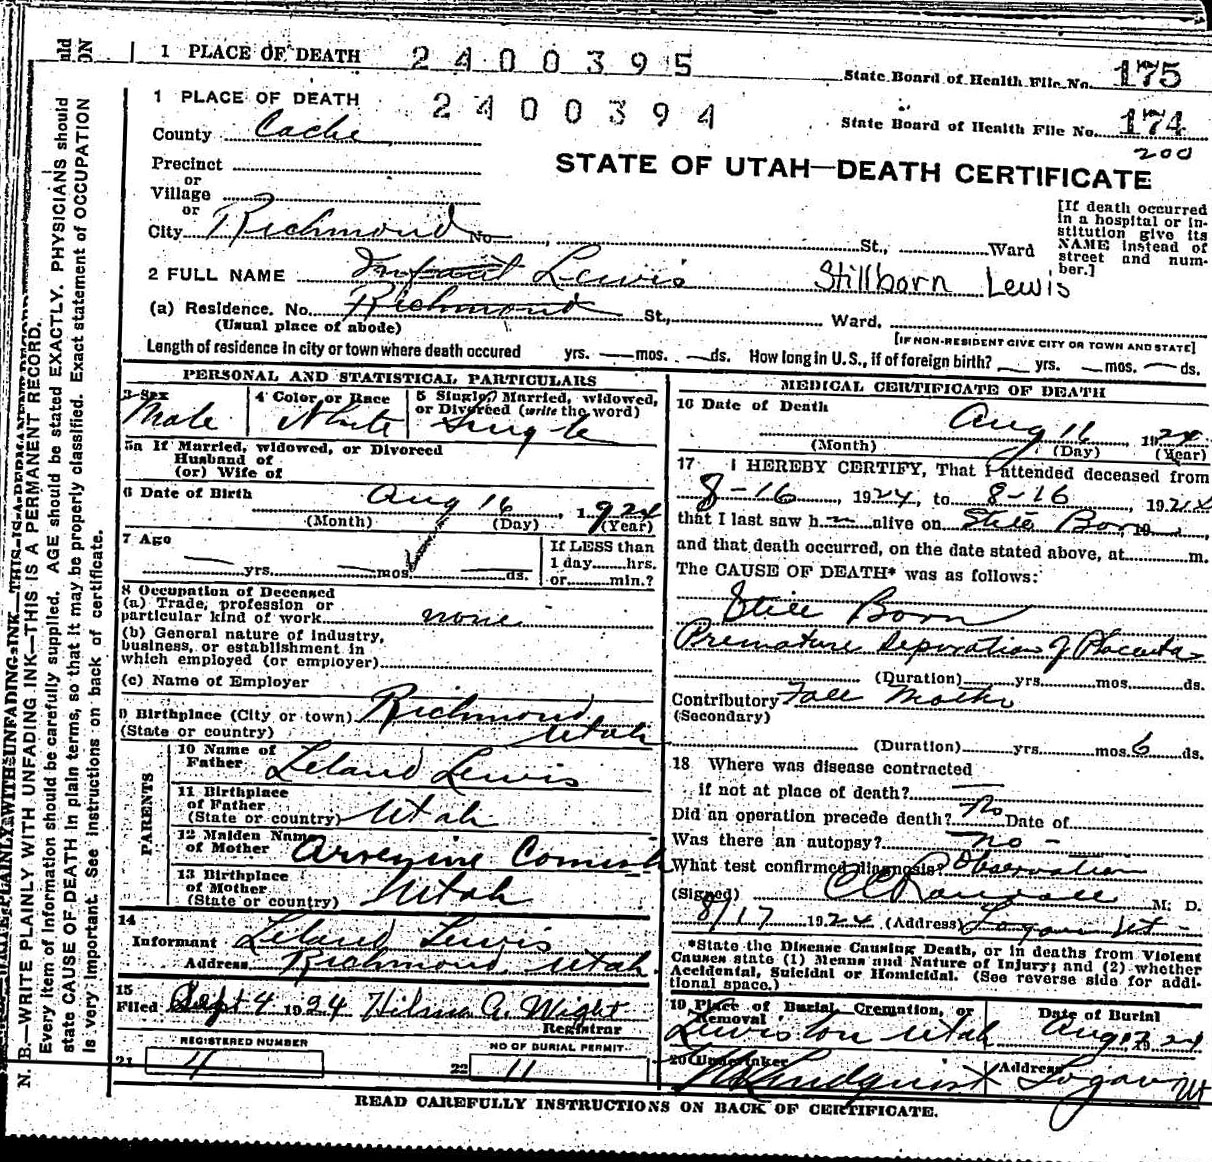 1 PLACE OF DEATH 2400395 State Board of Health File No. 175
1 PLACE OF DEATH 2400394 State Board of Health File No. 174
200
County Cache
STATE OF UTAH—DEATH CERTIFICATE
Precinct
or
Village
or
City Richmond No. St., Ward
[If death occurred in a hospital or institution give its NAME instead of street and number.]
2 FULL NAME Infant Lewis Stillborn Lewis
(a) Residence. No. Richmond St., Ward.
(Usual place of abode) [IF NON-RESIDENT GIVE CITY OR TOWN AND STATE]
Length of residence in city or town where death occured yrs. — mos. — ds. How long in U.S., if of foreign birth? — yrs. — mos. — ds.
PERSONAL AND STATISTICAL PARTICULARS
3 Sex 4 Color or Race 5 Single, Married, widowed, or Divorced (write the word)
Male White Single
5a If Married, widowed, or Divorced
Husband of
(or) Wife of
6 Date of Birth Aug 16, 1924
(Month) (Day) (Year)
7 Age — yrs. — mos. — ds.
If LESS than
1 day......hrs.
or......min.?
8 Occupation of Deceased
(a) Trade, profession or
particular kind of work none
(b) General nature of Industry,
business, or establishment in
which employed (or employer)
(c) Name of Employer
9 Birthplace (City or town) Richmond
(State or country) Utah
PARENTS
10 Name of Father Leland Lewis
11 Birthplace of Father (State or country) Utah
12 Maiden Name of Mother Cornish
13 Birthplace of Mother (State or country) Utah
14
Informant Leland Lewis
Address Richmond, Utah.
15
Filed Sept 4 1924 Hilma A. Wight
Registrar
REGISTERED NUMBER NO OF BURIAL PERMIT
21 4 22 11
MEDICAL CERTIFICATE OF DEATH
16 Date of Death Aug 16, 1924
(Month) (Day) (Year)
17 I HEREBY CERTIFY, That I attended deceased from
8-16, 1924, to 8-16, 1924
that I last saw h— alive on Still Born, 19
and that death occurred, on the date stated above, at m.
The CAUSE OF DEATH* was as follows:
Still Born
Premature Separation of Placenta
(Duration) yrs. mos. ds.
Contributory Fall Mother
(Secondary)
(Duration) yrs. mos. 6 ds.
18 Where was disease contracted
if not at place of death? —
Did an operation precede death? No Date of
Was there an autopsy? no —
What test confirmed diagnosis? Observation
(Signed) M. D.
8/17 1924 (Address) Logan Ut -
*State the Disease Causing Death, or in deaths from Violent
Causes state (1) Means and Nature of Injury; and (2) whether
Accidental, Suicidal or Homicidal. (See reverse side for addi-
tional space.)
19 Place of Burial, Cremation, or Removal Date of Burial
Lewiston Utah Aug 17 1924
20 Undertaker Lindquist Address Logan Ut
READ CAREFULLY INSTRUCTIONS ON BACK OF CERTIFICATE.
N. B.—WRITE PLAINLY WITH UNFADING INK—THIS IS A PERMANENT RECORD.
Every item of information should be carefully supplied. AGE should be stated EXACTLY. PHYSICIANS should
state CAUSE OF DEATH in plain terms, so that it may be properly classified. Exact statement of OCCUPATION
is very important. See instructions on back of certificate.